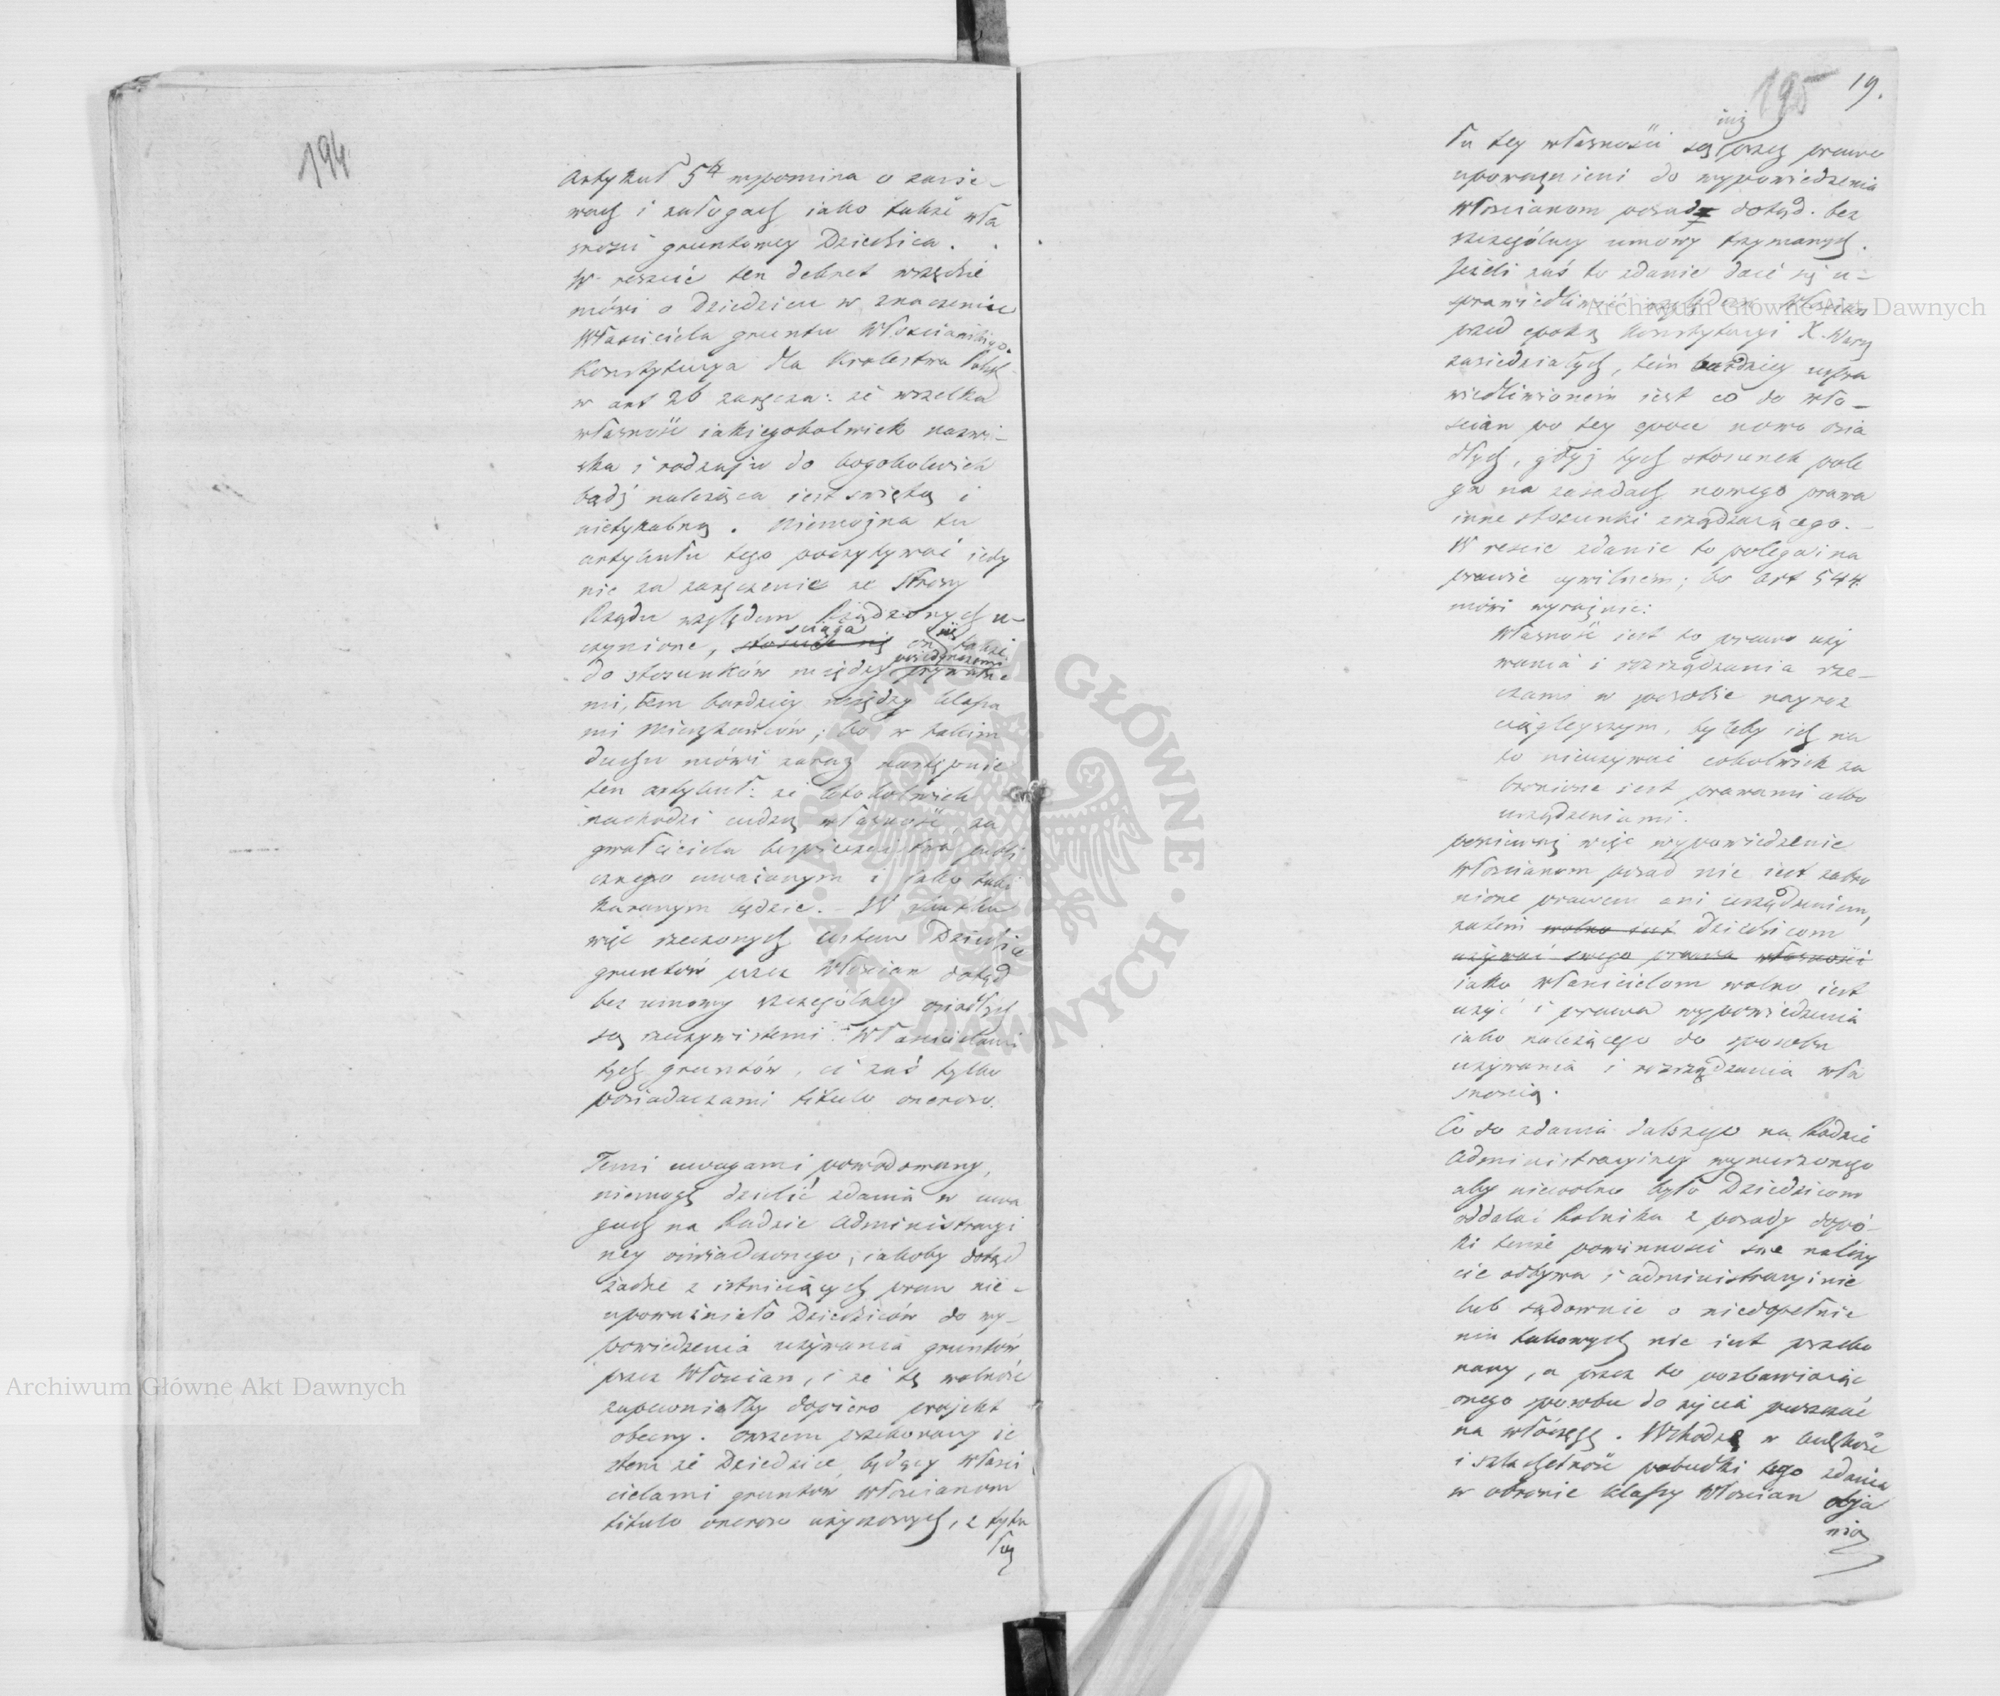 194
Artykuł 5ty wspomina o zasie-
wach i załogach iako także wła
sności gruntowey Dziedzica.
W reszcie ten dekret wszędzie
mówi o Dziedzicu w znaczeniu
Właściciela gruntu Włościańskiego.
Konstytucya dla Krolestwa Polsk.
w art 26 zaręcza: że wszelka
własność iakiegokolwiek nazwi-
ska i rodzaju do kogokolwiek
bądź należąca iest świętą i
nietykalną. Niemożna tu
artykułu tego poczytywać iedy
nie za zaręczenie ze strony
Rządu względem Rządzonych u-
czynione, stosuie się ściąga on się także
do stosunków między prywatne pojedynczemi
mi, tem bardziey między klassa
mi Mieszkańców; bo w takim
duchu mówi zaraz następnie
ten artykuł: że ktokolwiek
nachodzi cudzą własność, za
gwałciciela bezpieczeństwa publi
cznego uważanym i iako taki
karanym będzie. – W skutku
więc rzeczonych ustaw Dziedzice
gruntów przez Włościan dotąd
bez umowy szczególney osiadłych
są rzeczywistemi Właścicielami
tych gruntów, ci zaś tylko
posiadaczami titulo oneroso.
Temi uwagami powodowany,
niemogę dzielić zdania w uwa
gach na Radzie Administracyi
ney oświadczonego, iakoby dotąd
żadne z istnieiących praw nie-
upoważniało Dziedziców do wy-
powiedzenia używania gruntów
przez Włościan, i że tę wolność
zapewniałby dopiero projekt
obecny. Owszem przekonany ie
stem że Dziedzice będący właści
cielami gruntów Włościanom
titulo oneroso użyczonych, z tytu
łu
195 19.
łu tey własności są iuż przez prawo
upoważnieni do wypowiedzenia
Włościanom posad dotąd bez
szczególney umowy trzymanych.
Jeżeli zaś to zdanie daie się u-
sprawiedliwić względem Włościan
przed epoką Konstytucyi X. Warsz
zasiedziałych, tém bardziey uspra
wiedliwioném iest co do Wło-
ścian po tey epoce nowo osia
dłych, gdyż tych stosunek pole
ga na zasadach nowego prawa
inne stosunki zrządzaiącego. –
W reszcie zdanie to polega i na
prawie cywilnem; bo art 544
mówi wyraźnie:
Własność iest to prawo uży
wania i rozrządzania rze-
czami w sposobie nayroz
ciągleyszym, byleby ich na
to nieużywać cokolwiek za
bronione iest prawami albo
urządzeniami.
ponieważ więc wypowiedzenie
Włościanom posad nie iest zabro
nione prawem ani urządzeniem,
zatém wolno iest Dziedzicom
używać swego prawa własności
iako właścicielom wolno iest
użyć i prawa wypowiedzenia
iako należącego do sposobu
używania i rozrządzania wła
snością.
Co do zdania dalszego na Radzie
Administracyiney wynurzonego
aby niewolno było Dziedzicom
oddalać Rolnika z posady dopó-
ki tenże powinności swe należy
cie odbywa i administracyinie
lub sądownie o niedopełnie
niu takowych nie iest przeko
nany, a przez to pozbawiaiąc
onego sposobu do życia puszczać
na włóczęgę. Wchodzę w ludzkość
i szlachetność pobudki tego zdania
w obronie klassy Włościan obja
nia
Archiwum Główne Akt Dawnych
Archiwum Główne Akt Dawnych
ARCHIWUM GŁÓWNE AKT DAWNYCH